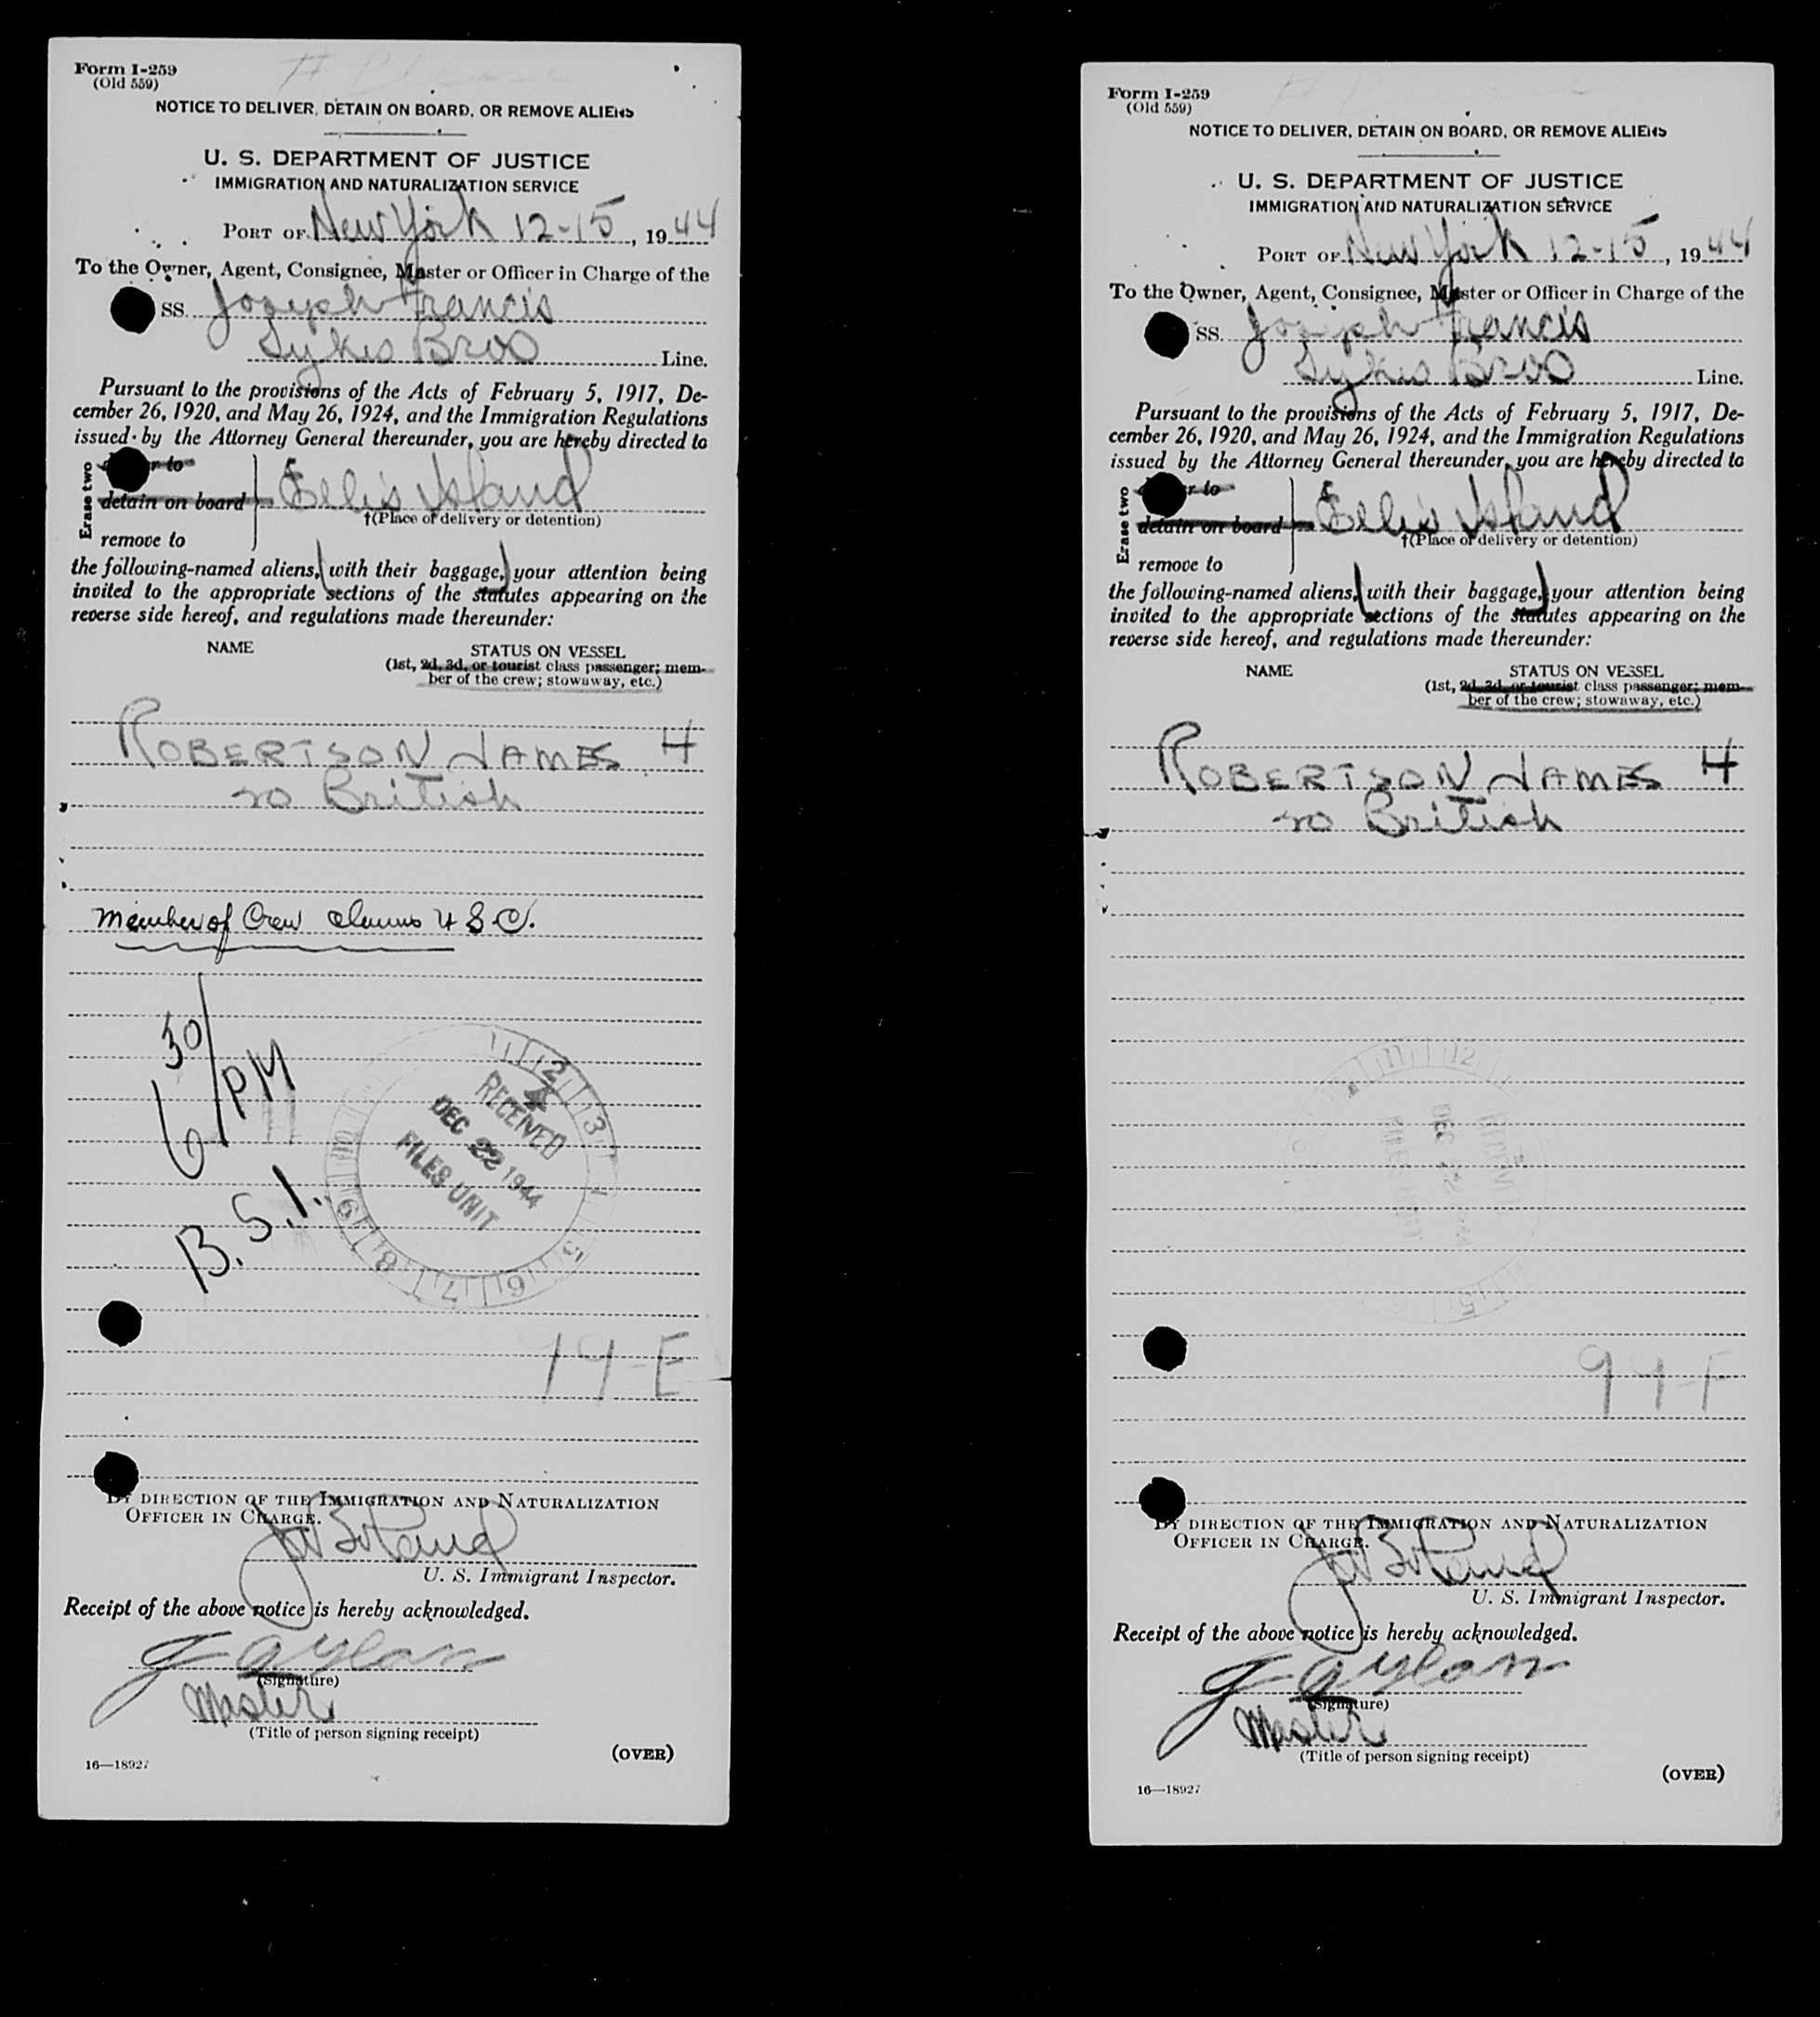 Form I-259
(Old 559)
NOTICE TO DELIVER, DETAIN ON BOARD, OR REMOVE ALIENS
U. S. DEPARTMENT OF JUSTICE
IMMIGRATION AND NATURALIZATION SERVICE
PORT OF New York 12-15, 1944
To the Owner, Agent, Consignee, Master or Officer in Charge of the
SS. Joseph Francis
Lykes Bros Line.
Pursuant to the provisions of the Acts of February 5, 1917, De-
cember 26, 1920, and May 26, 1924, and the Immigration Regulations
issued by the Attorney General thereunder, you are hereby directed to
Erase two
to
detain on board Ellis Island
†(Place of delivery or detention)
remove to
the following-named aliens, (with their baggage,) your attention being
invited to the appropriate sections of the statutes appearing on the
reverse side hereof, and regulations made thereunder:
NAME STATUS ON VESSEL
(1st, 2d, 3d, or tourist class passenger; mem-
ber of the crew; stowaway, etc.)
ROBERTSON JAMES H
British
Member of Crew claims U S C.
6 30/PM
B.S.I.
RECEIVED
DEC 22 1944
FILES UNIT
BY DIRECTION OF THE IMMIGRATION AND NATURALIZATION
OFFICER IN CHARGE.
U. S. Immigrant Inspector.
Receipt of the above notice is hereby acknowledged.
(Signature)
Master
(Title of person signing receipt)
16—18927 (OVER)
Form I-259
(Old 559)
NOTICE TO DELIVER, DETAIN ON BOARD, OR REMOVE ALIENS
U. S. DEPARTMENT OF JUSTICE
IMMIGRATION AND NATURALIZATION SERVICE
PORT OF New York 12-15, 1944
To the Owner, Agent, Consignee, Master or Officer in Charge of the
SS. Joseph Francis
Lykes Bros Line.
Pursuant to the provisions of the Acts of February 5, 1917, De-
cember 26, 1920, and May 26, 1924, and the Immigration Regulations
issued by the Attorney General thereunder, you are hereby directed to
Erase two
to
detain on board Ellis Island
†(Place of delivery or detention)
remove to
the following-named aliens, (with their baggage,) your attention being
invited to the appropriate sections of the statutes appearing on the
reverse side hereof, and regulations made thereunder:
NAME STATUS ON VESSEL
(1st, 2d, 3d, or tourist class passenger; mem-
ber of the crew; stowaway, etc.)
ROBERTSON JAMES H
British
DEC 22
BY DIRECTION OF THE IMMIGRATION AND NATURALIZATION
OFFICER IN CHARGE.
U. S. Immigrant Inspector.
Receipt of the above notice is hereby acknowledged.
(Signature)
Master
(Title of person signing receipt)
16—18927 (OVER)